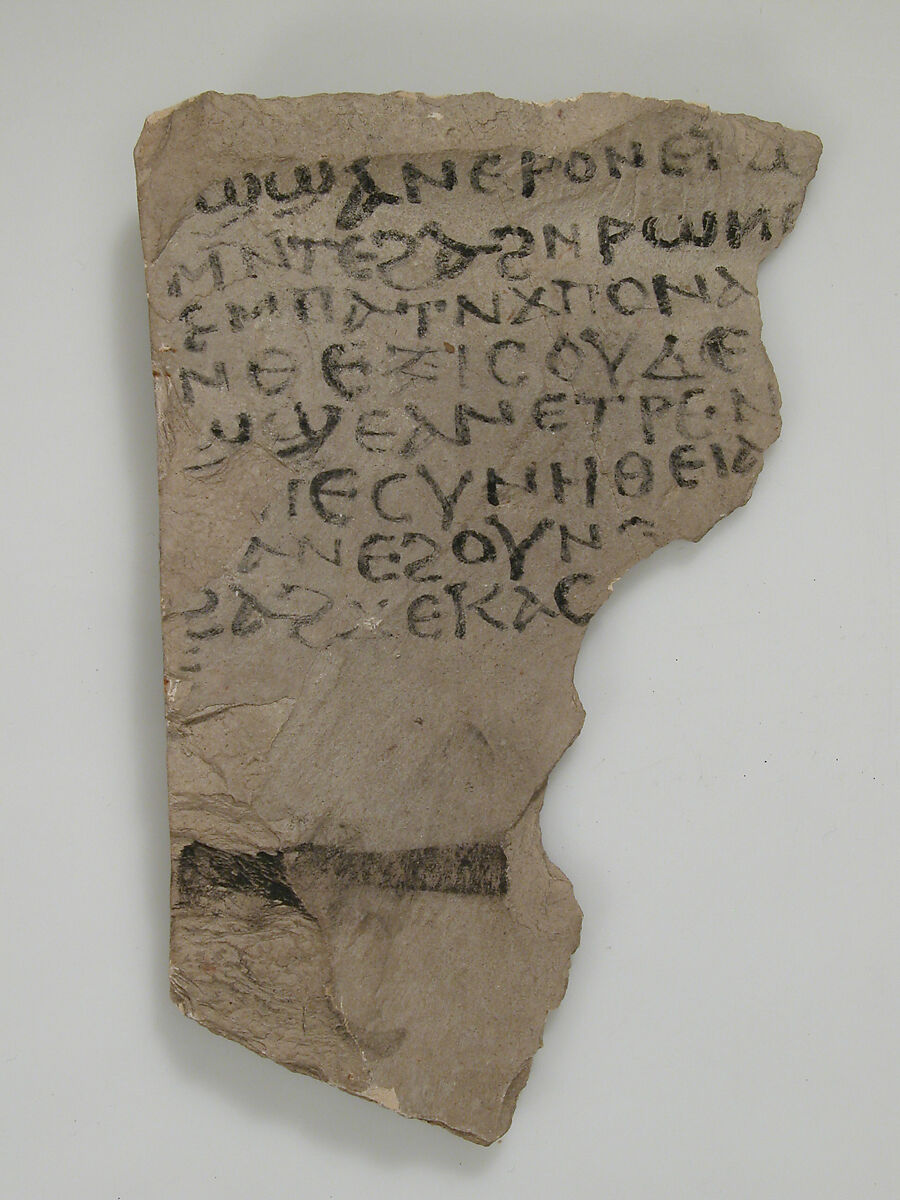 ϣϣⲁⲛⲉⲣⲟⲛⲉⲓ
ⲙⲛⲧⲉϩϩⲁϩⲛⲣⲱⲙⲉ
ⲉⲙⲡⲁⲧⲛⲁⲡⲟⲛⲁ
ⲛⲑⲉⲝⲓⲥⲟⲩⲇⲉ
ϣϣⲉⲁⲛⲉⲧⲣⲉⲛ
ⲓⲉⲥⲩⲛⲏⲑⲉⲓⲁ
ⲁⲛⲉϩⲟⲩⲛ
ϩⲁϩϫⲉⲕⲁⲥ